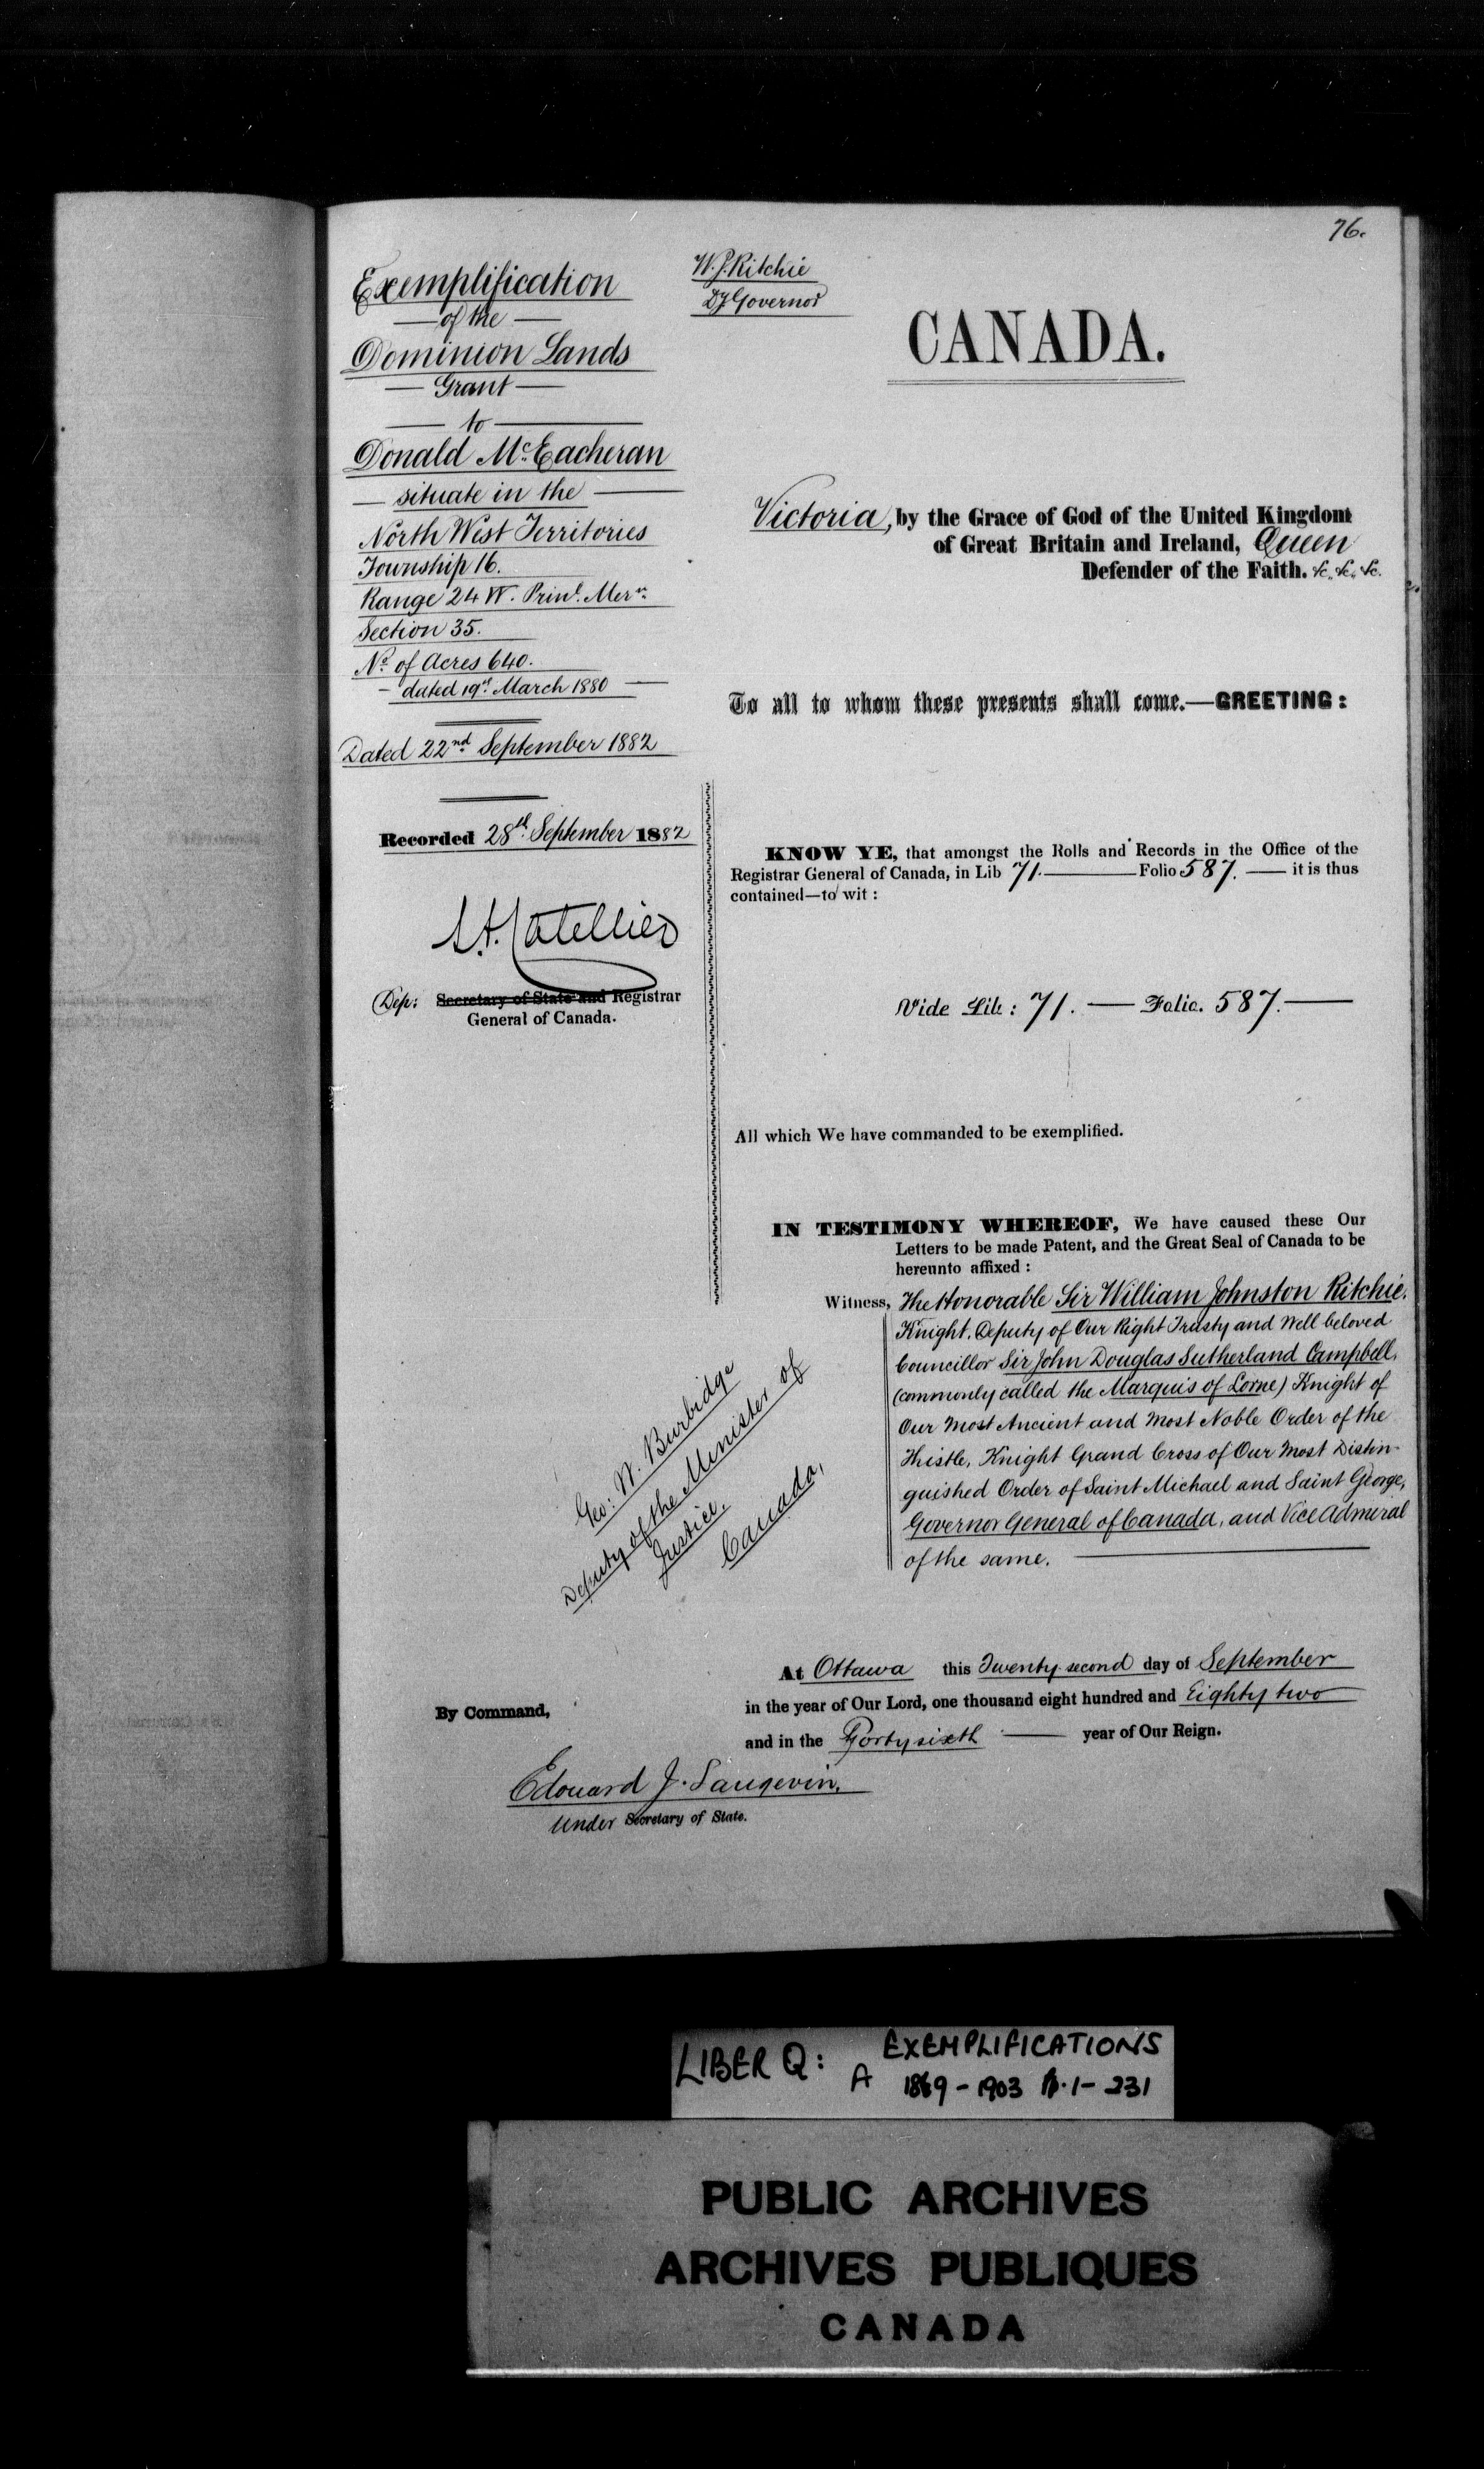 76.
Exemplification
of the
Dominion Lands
Grant
to
Donald McEacheran
situate in the
North West Territories
Township 16.
Range 24 W. Prinl. Mern.
Section 35.
No. of Acres 640.
dated 19th March 1880
Dated 22nd September 1882
Recorded 28th September 1882
Dep: Secretary of State and Registrar
General of Canada.
W. J. Ritchie
Dy Governor
CANADA.
Victoria, by the Grace of God of the United Kingdom
of Great Britain and Ireland, Queen
Defender of the Faith. &c., &c., &c.
To all to whom these presents shall come.—GREETING:
KNOW YE, that amongst the Rolls and Records in the Office of the
Registrar General of Canada, in Lib 71. Folio 587. it is thus
contained—to wit:
Vide Lib: 71. — Folio. 587. —
All which We have commanded to be exemplified.
IN TESTIMONY WHEREOF, We have caused these Our
Letters to be made Patent, and the Great Seal of Canada to be
hereunto affixed:
Witness, The Honorable Sir William Johnston Ritchie.
Knight, Deputy of Our Right Trusty and Well beloved
Councillor Sir John Douglas Sutherland Campbell,
(commonly called the Marquis of Lorne) Knight of
Our Most Ancient and Most Noble Order of the
Thistle, Knight Grand Cross of Our Most Distin-
guished Order of Saint Michael and Saint George,
Governor General of Canada, and Vice Admiral
of the same.
Geo: W. Burbidge
Deputy of the Minister of
Justice.
Canada,
At Ottawa this Twenty second day of September
in the year of Our Lord, one thousand eight hundred and Eighty two
and in the Forty sixth year of Our Reign.
By Command,
Edouard J. Langevin,
Under Secretary of State.
LIBER Q: A EXEMPLIFICATIONS
1869-1903 p. 1-231
PUBLIC ARCHIVES
ARCHIVES PUBLIQUES
CANADA